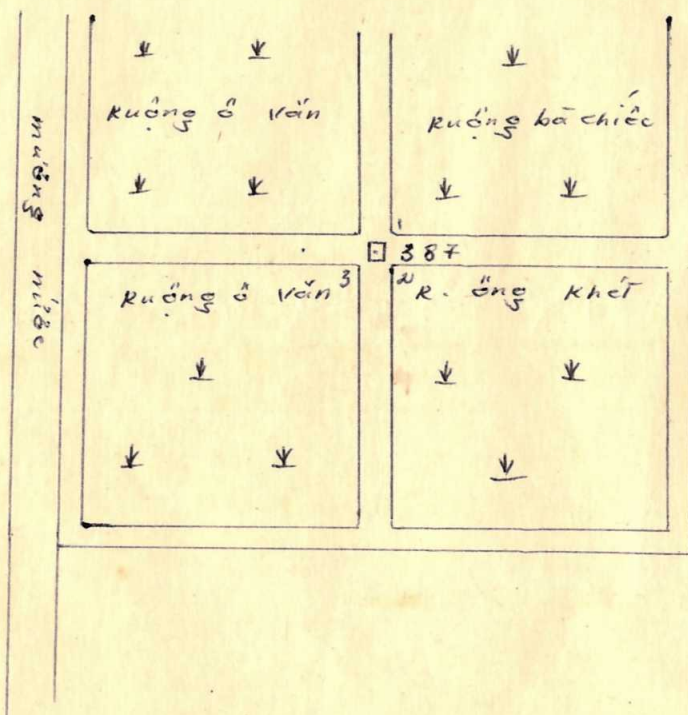 mương nước
Ruộng ô Văn
Ruộng bà chiếc
1
387
Ruộng ô Văn 3
2 R. ông Khết